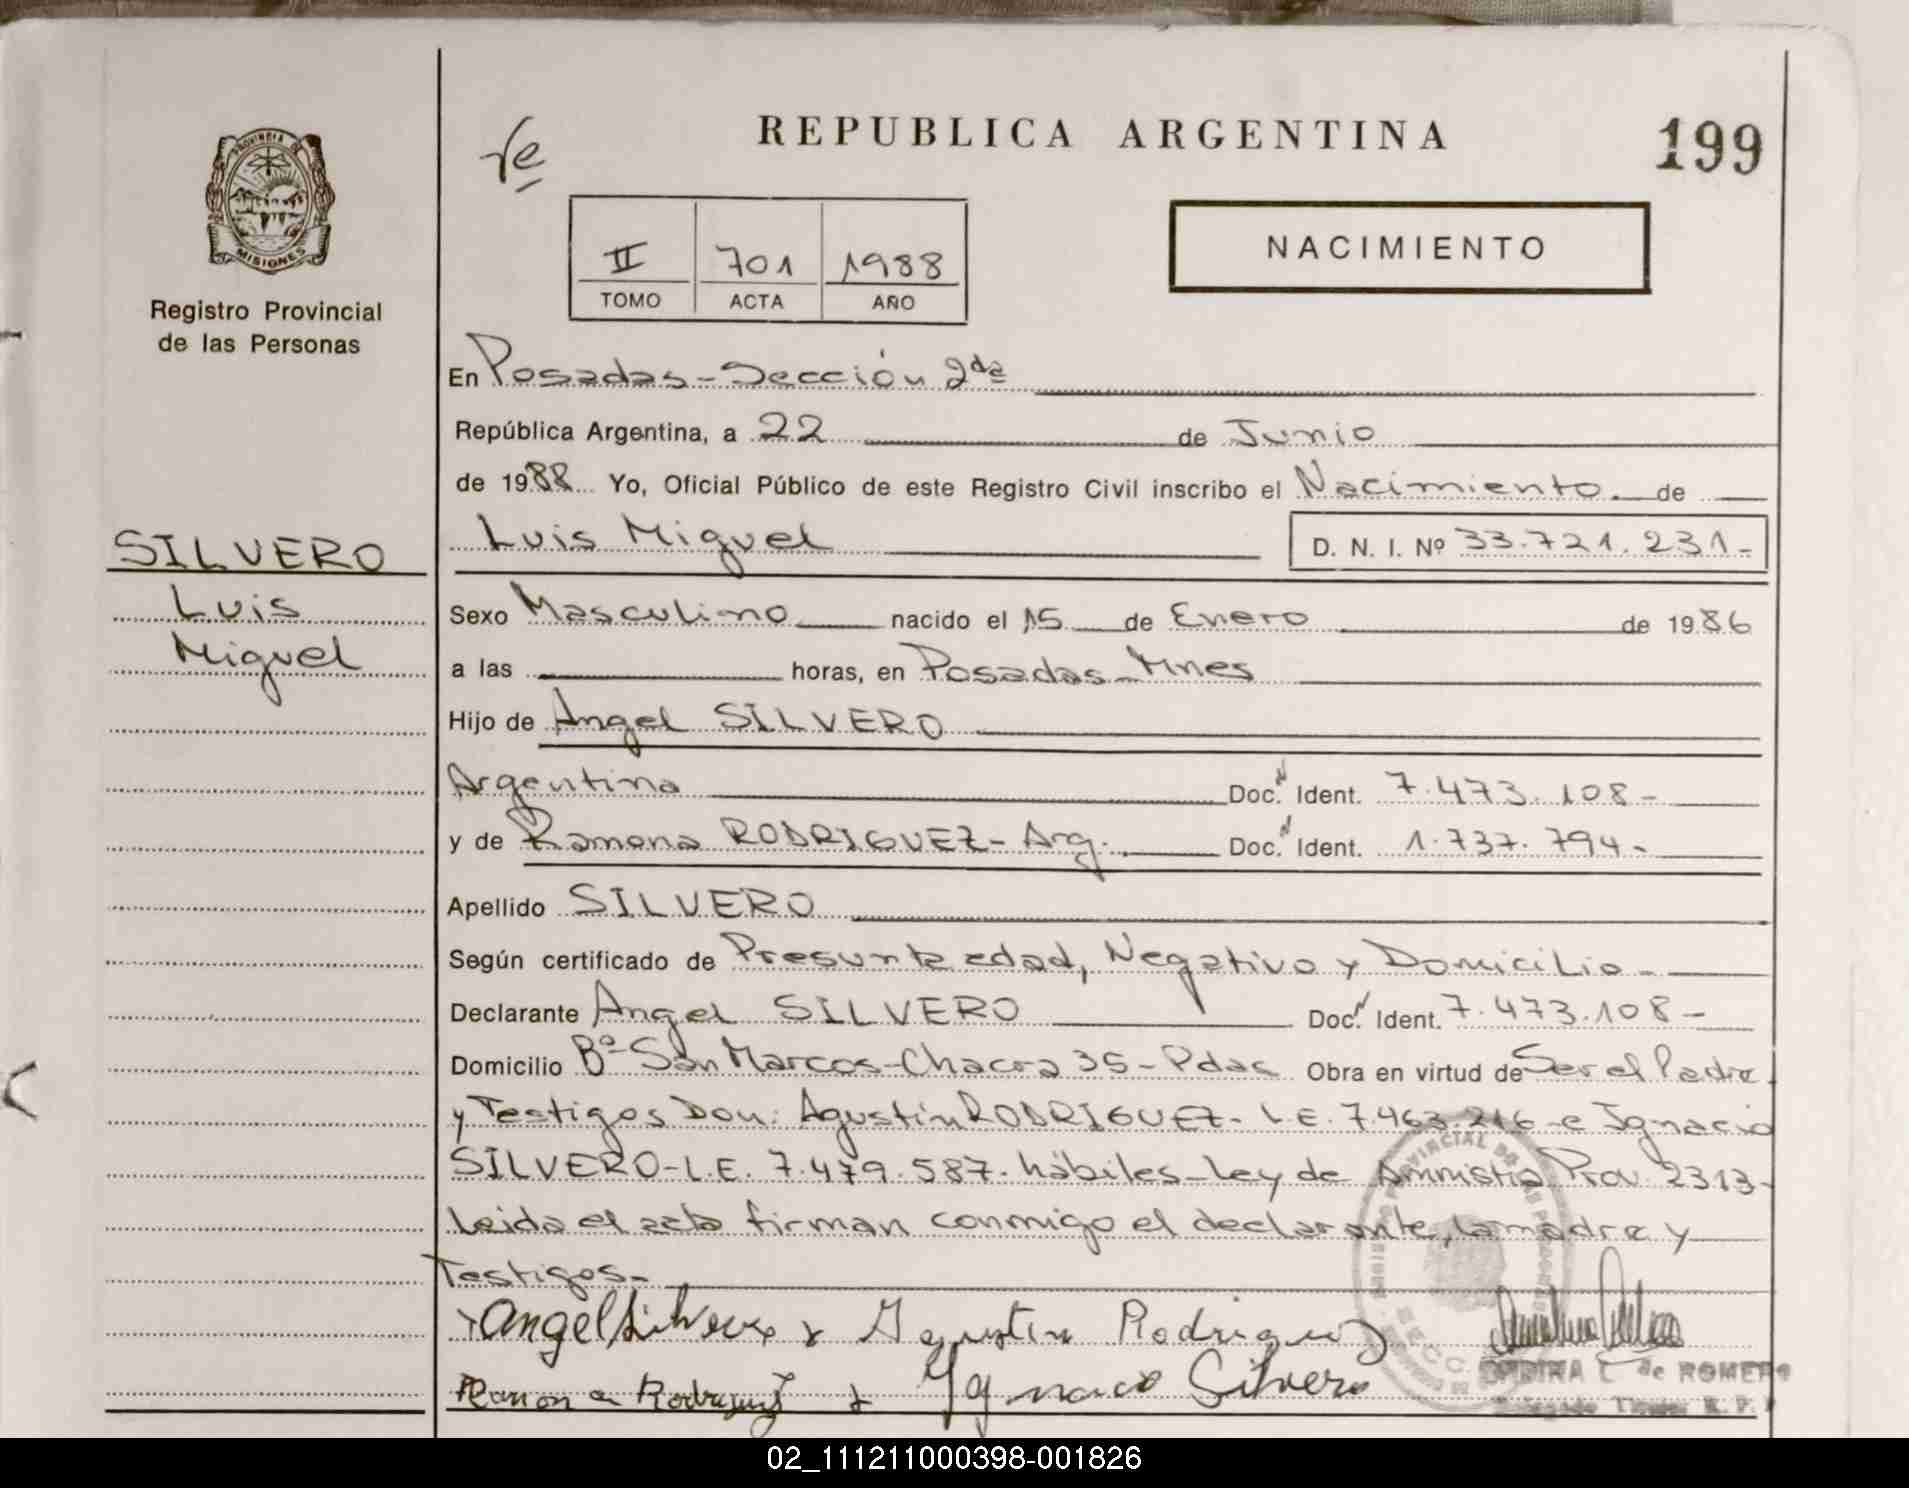 REPUBLICA ARGENTINA
199
PROVINCIA DE
MISIONES
Registro Provincial
de las Personas
NACIMIENTO
II 701 1988
TOMO ACTA AÑO
En Posadas - Sección 2da
República Argentina, a 22 de Junio
de 1988 Yo, Oficial Público de este Registro Civil inscribo el Nacimiento. de
SILVERO
Luis
Miguel
Luis Miguel D. N. I. Nº 33.721.231-
Sexo Masculino nacido el 15 de Enero de 1986
a las horas, en Posadas - Mnes
Hijo de Angel SILVERO
Argentina Doc. Ident. 7.473.108-
y de Ramona RODRIGUEZ - Arg. Doc. Ident. 1.737.794-
Apellido SILVERO
Según certificado de Presunta edad, Negativo y Domicilio-
Declarante Angel SILVERO Doc. Ident. 7.473.108-
Domicilio Bº San Marcos - Chacra 35 - Pdas Obra en virtud de Ser el Padre
y Testigos Don: Agustín RODRIGUEZ - L.E. 7.463.216 - e Ignacio
SILVERO - L.E. 7.479.587. hábiles - Ley de Amnistia Prov. 2313-
Leida el acta firman conmigo el declarante, la madre y
Testigos-
Angel Silvero x Agustin Rodriguez
Ramona Rodriguez x Ygnacio Silvero
de ROMERO
02_111211000398-001826